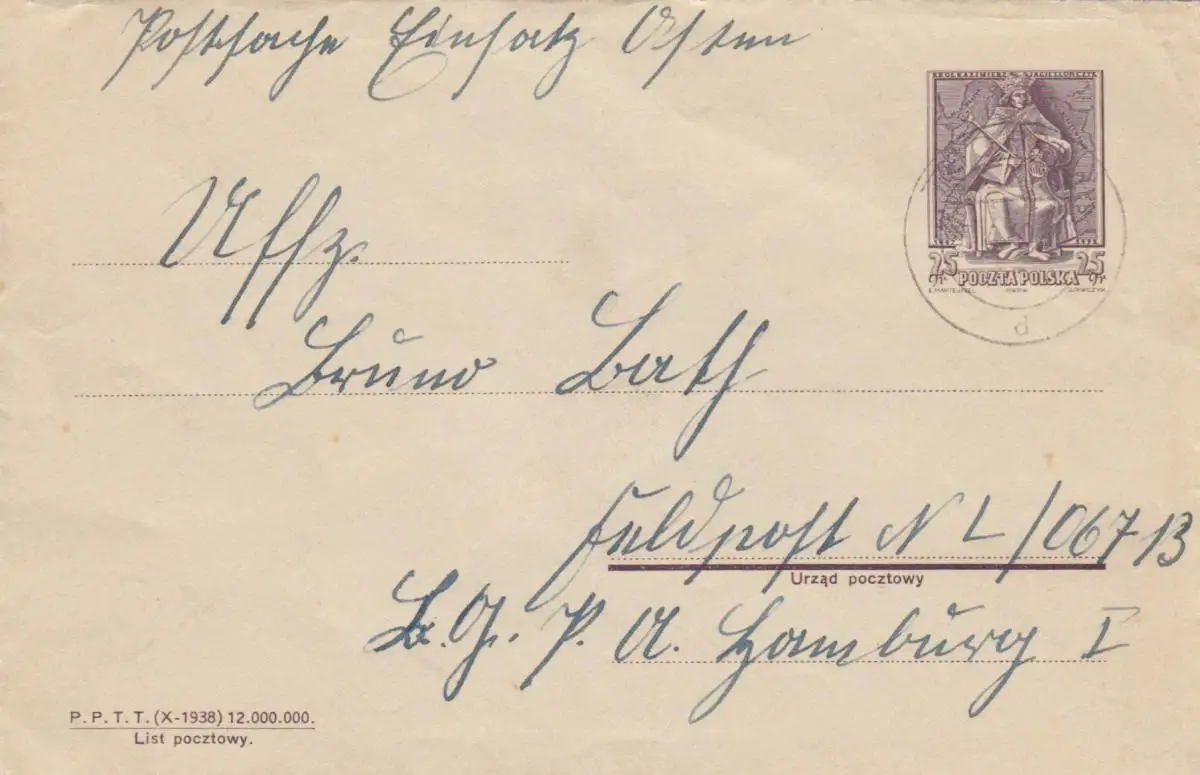 Postsache Einsatz Osten
KRÓL KAZIMIERZ JAGIELLOŃCZYK
25 gr POCZTA POLSKA 25 gr
d
Uffz.
Bruno Bath
Feldpost N L/06713
Urząd pocztowy
L.G.P.A. Hamburg I
P.P.T.T. (X-1938) 12.000.000.
List pocztowy.